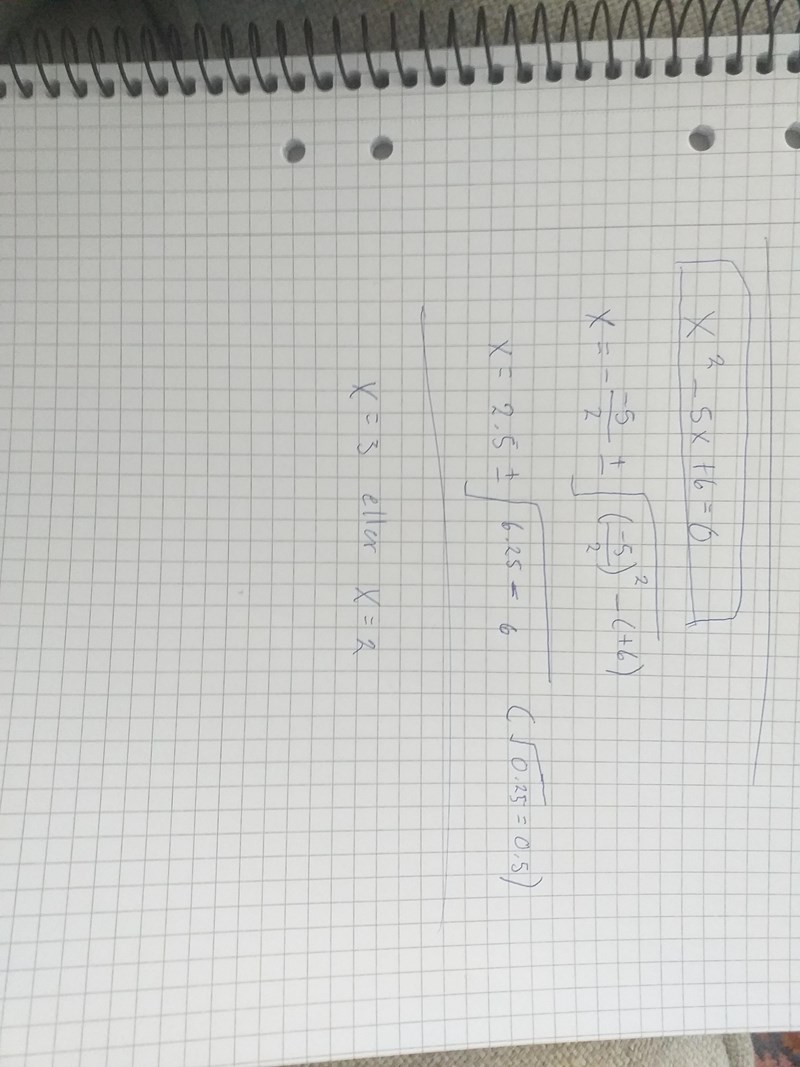 x² - 5x + 6 = 0
x = - -5/2 ± √((-5/2)² - (+6))
x = 2.5 ± √(6.25 = 6) (√0.25 = 0.5)
x = 3 eller x = 2